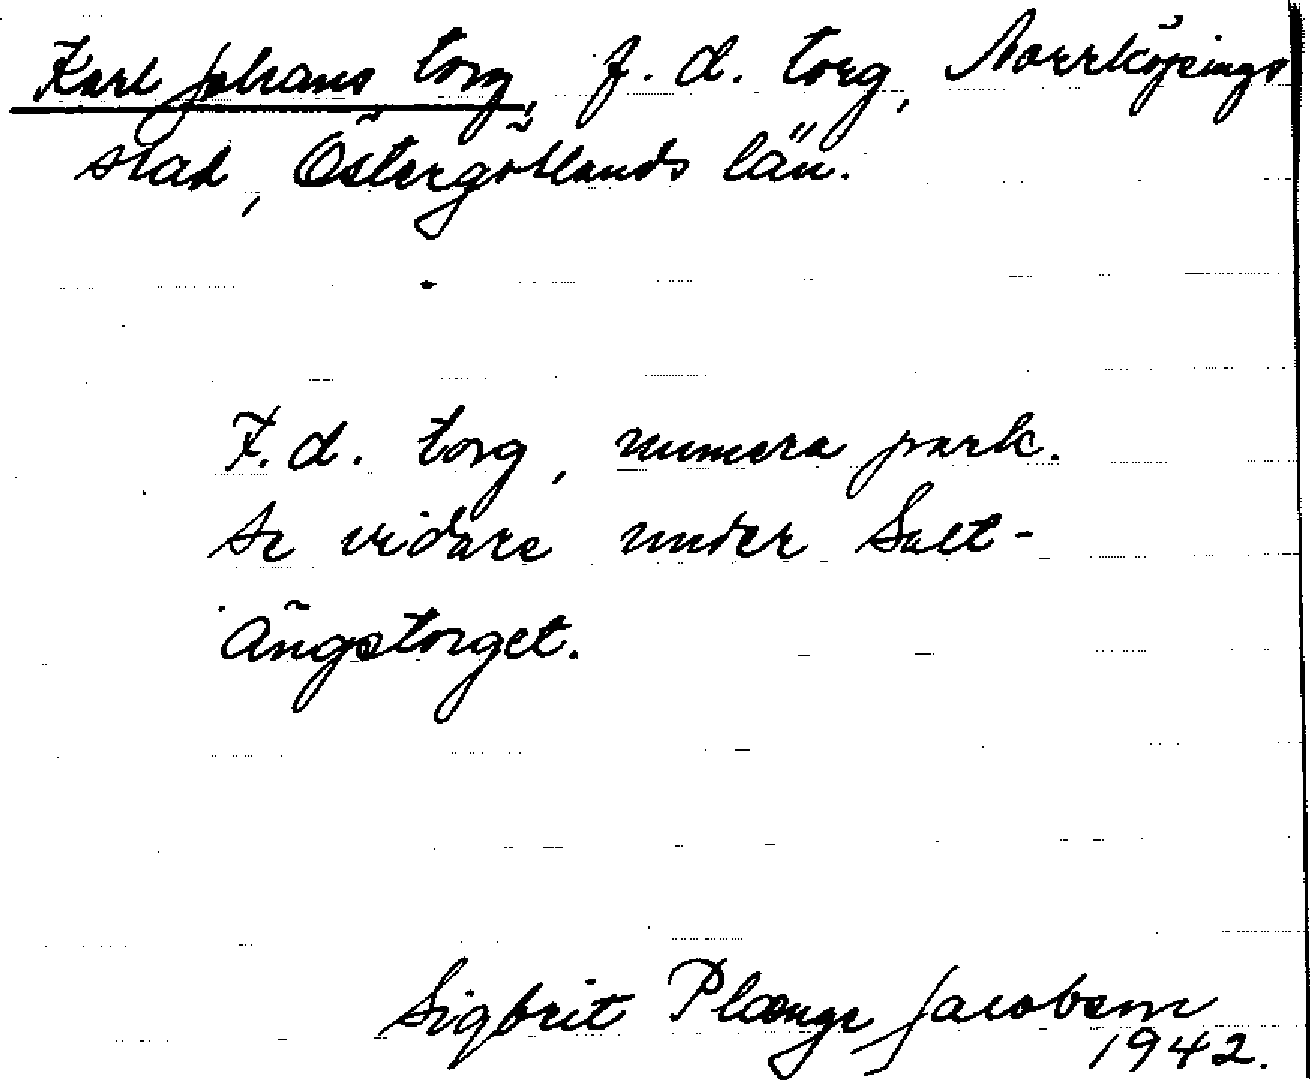 Karl Johans torg, f. d. torg, Norrköpings
stad, Östergötlands län.
F. d. torg, numera park.
Se vidare under Salt-
ängstorget.
Sigbrit Plænge Jacobson
1942.